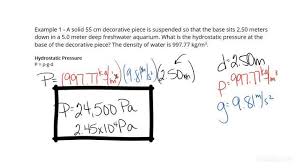 Example 1 - A solid 55 cm decorative piece is suspended so that the base sits 2.50 meters
down in a 5.0 meter deep freshwater aquarium. What is the hydrostatic pressure at
the base of the decorative piece? The density of water is 997.77 kg/m³.
Hydrostatic Pressure
P = ρ·g·d
P=(997.77 kg/m³)(9.81 m/s²)(2.50m)
P=24,500 Pa
2.45x10⁴ Pa
d=2.50m
ρ=997.77 kg/m³
g=9.81 m/s²